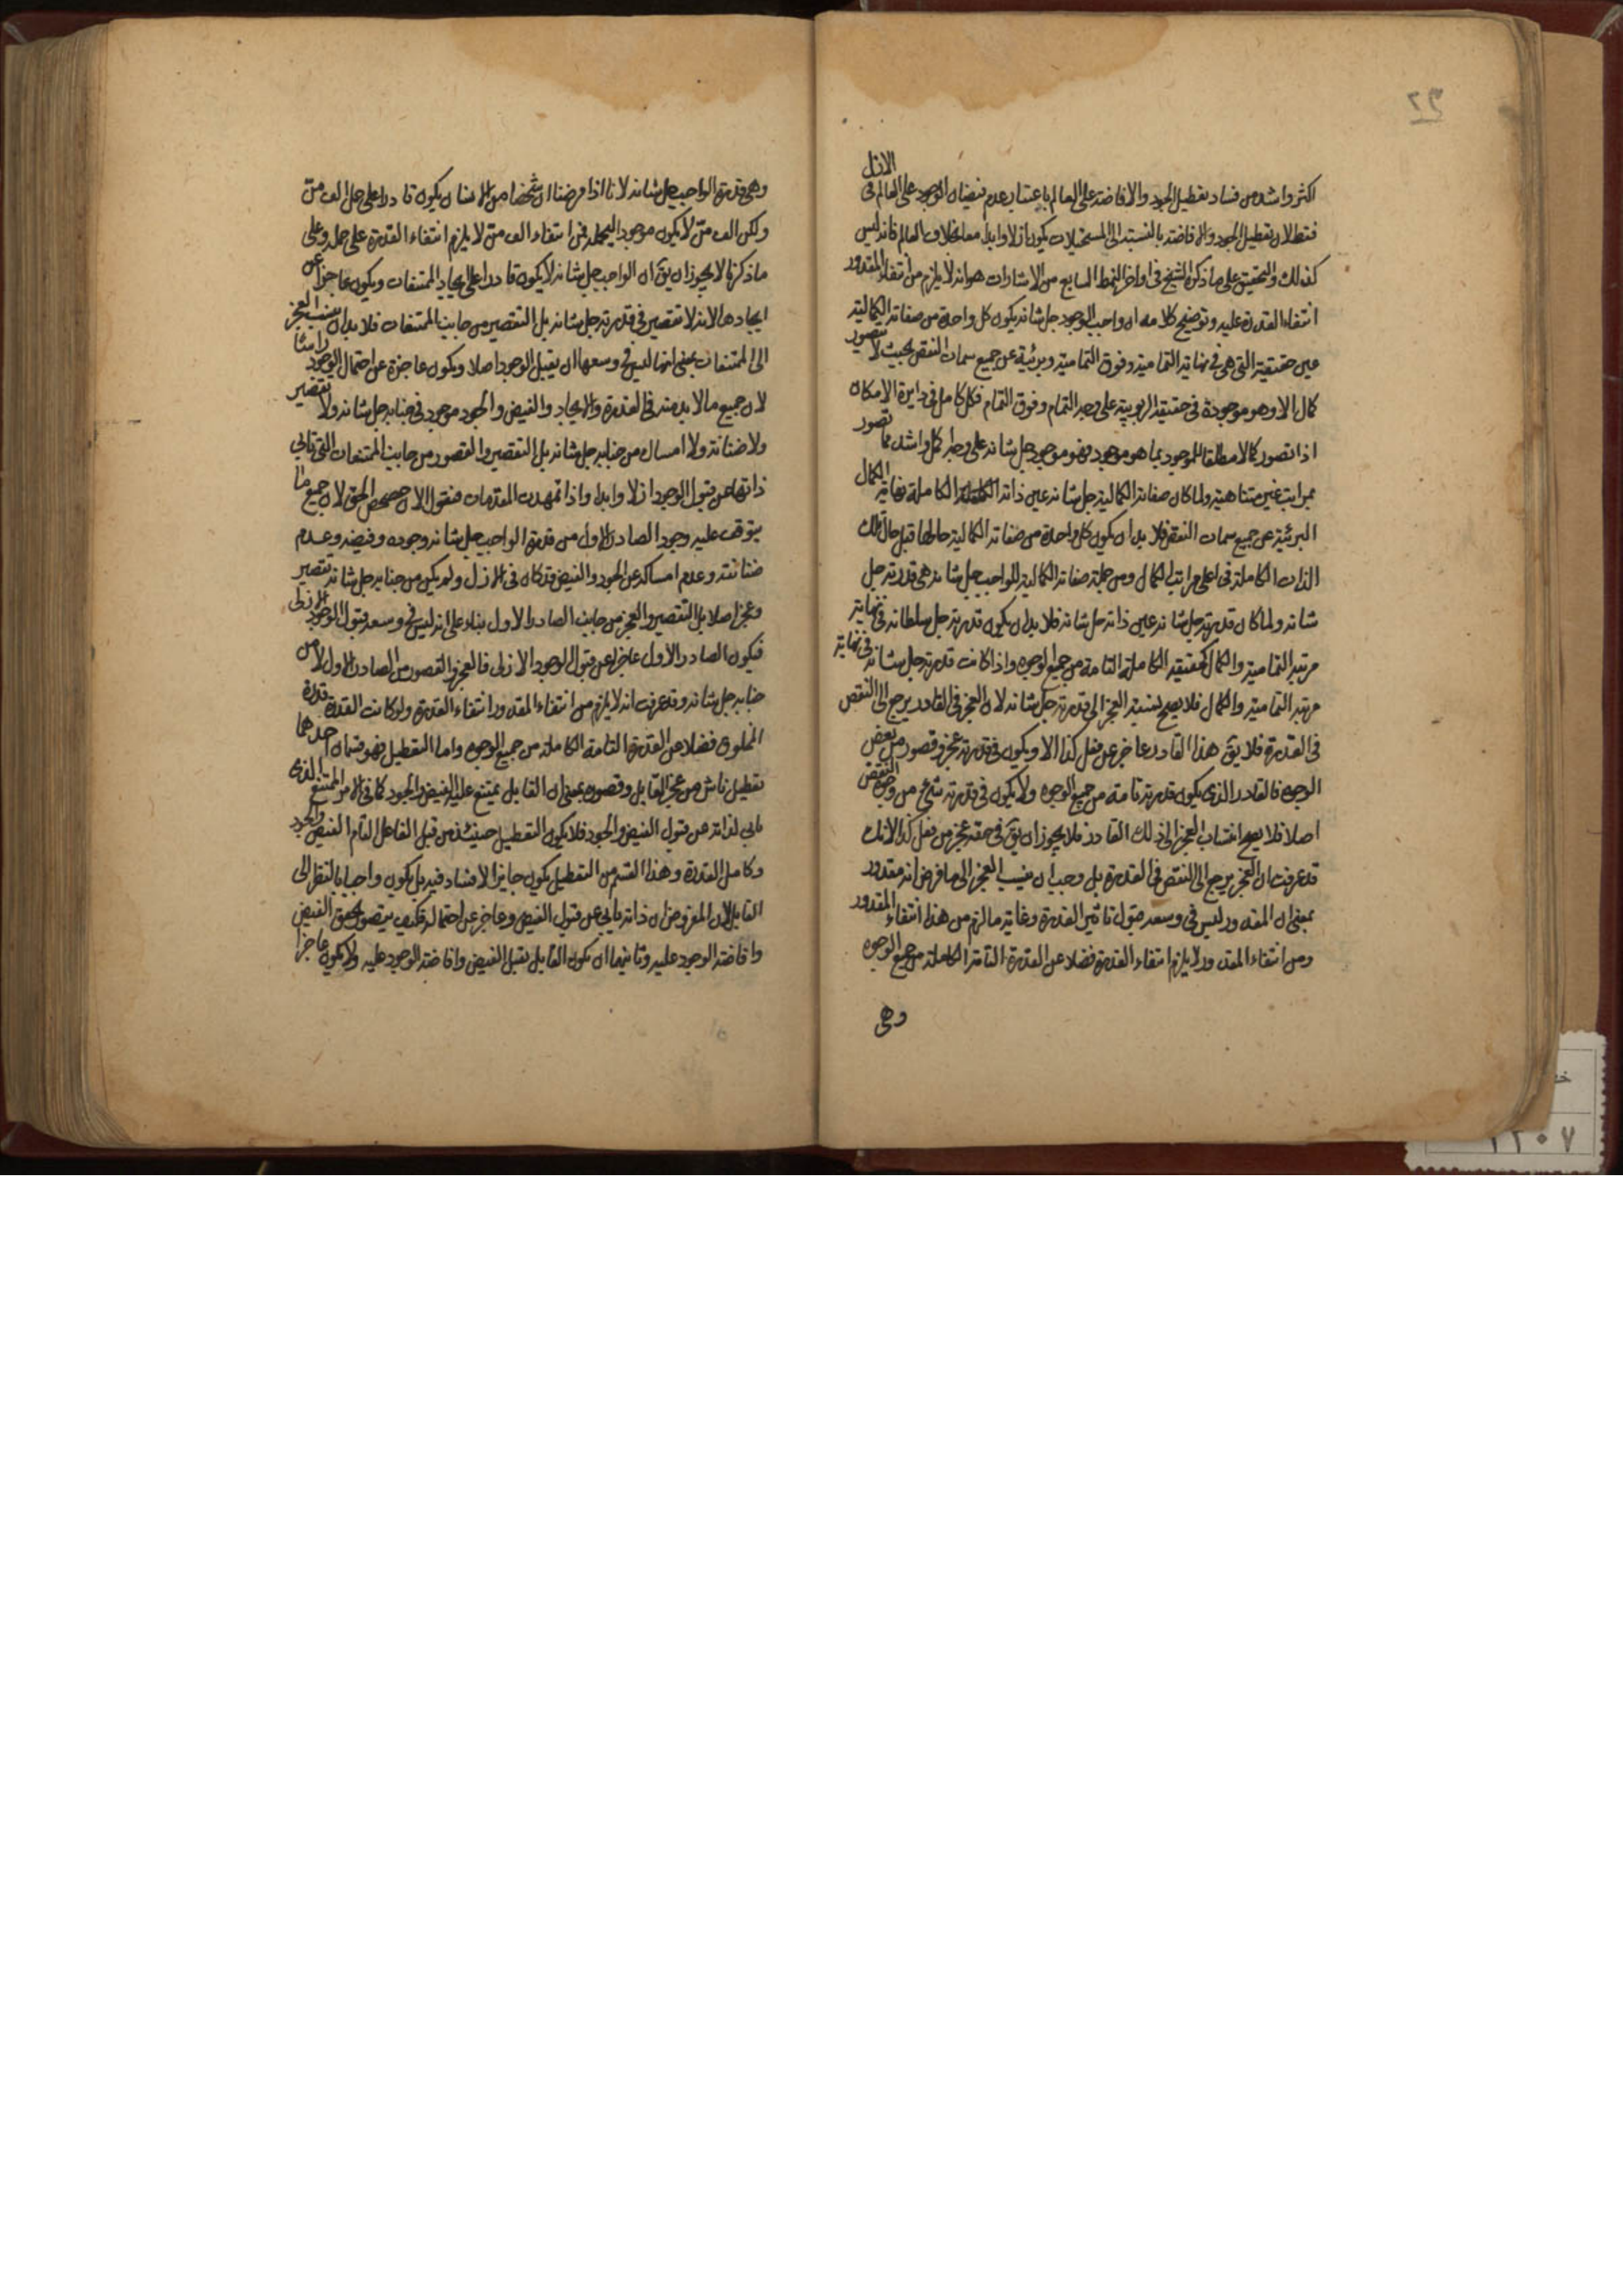 ٢٩
اكثر واشد من فساد تعطيل الجود والافاضة على العالم باعتبار عدم فيضان الوجود على العالم فى الازل
فبطلان تعطيل الجود والافاضة بالنسبة الى المستحيلات يكون ازلا وابدا معا بخلاف العالم فانه ليس
كذلك والتحقيق على ما ذكره الشيخ فى اواخر النمط السابع من الاشارات هو انه لا يلزم من انتفاء المقدور
انتفاء القدرة عليه وتوضيح كلامه ان واجب الوجود جل شانه يكون كل واحدة من صفاته الكمالية
عين حقيقية التى هى فى نهاية التمامية وفوق التمامية وبريئة عن جميع سمات النقص بحيث لا يتصور
كمال الا وهو موجودة فى حقيقة الربوبية على وجه التمام وفوق التمام فكل كامل فى دايرة الامكان
اذا تصور كمالا مطلقا للموجود بما هو موجود فهو موجود جل شانه على وجه اكمل واشد مما تصور
بمراتب غير متناهية ولما كان صفاته الكمالية جل شانه عين ذاته الكاملة نهاية الكمال
البريئة عن جميع سمات النقص فلا بد ان يكون كل واحدة من صفاته الكمالية حالها قبل حال تلك
الذات الكاملة فى اعلى مراتب الكمال ومن جملة صفاته الكمالية للواجب جل شانه هى قدرته جل
شانه ولما كان قدرته جل شانه عين ذاته جل شانه فلا بد ان يكون قدرته جل سلطانه فى نهاية
مرتبة التمامية والكمال كحقيقته الكاملة التامة من جميع الوجوه واذا كانت قدرته جل شانه فى نهاية
مرتبة التمامية والكمال فلا يصح نسبة العجز الى قدرته جل شانه لان العجز فى القادر يرجع الى النقص
فى القدرة فلا يق هذا القادر عاجز عن فعل كذا الا ويكون فى قدرته عجز وقصور من بعض
الوجوه فالقادر الذى يكون قدرته تامة من جميع الوجوه ولا يكون فى قدرته شئ من وجوه النقص
اصلا فلا يصح انتساب العجز الى ذلك القادر فلا يجوز ان يق فى حقه عجز من فعل كذا لانك
قد عرفت ان العجز يرجع الى النقص فى القدرة بل وجب ان ينسب العجز الى ما فرض انه مقدور
بمعنى ان المقدور ليس فى وسعه قبول تاثير القدرة وغاية ما لزم من هذا انتفاء المقدور
ومن انتفاء المقدور لا يلزم انتفاء القدرة فضلا عن القدرة التامة الكاملة من جميع الوجوه
وهى
وهى قدرة الواجب جل شانه لانا اذا فرضنا ان شخصا من الانسان يكون قادرا على حمل الف من
ولكن الف من لا يكون موجودا ليحمله فمن انتفاء الف من لا يلزم انتفاء القدرة على حمله وعلى
ما ذكرنا لا يجوز ان يق ان الواجب جل شانه لا يكون قادرا على ايجاد الممتنعات ويكون عاجزا عن
ايجادها لانه لا تقصير فى قدرته جل شانه بل التقصير من جانب الممتنعات فلا بد ان ينسب العجز
الى الممتنعات بمعنى انها ليس فى وسعها ان يقبل الوجود اصلا ويكون عاجزة عن احتمال الوجود راسا
لان جميع ما لا بد منه فى القدرة والايجاد والفيض والجود موجود فى جنابه جل شانه ولا تقصير
ولا ضنانة ولا امساك من جنابه جل شانه بل التقصير والقصور من جانب الممتنعات التى تابى
ذاتها عن قبول الوجود ازلا وابدا واذا تمهدت المقدمات فنقول الان حصحص الحق لان جميع ما
يتوقف عليه وجود الصادر الاول من قدرة الواجب جل شانه وجوده وفيضه وعدم
ضنانته وعدم امساكه عن الجود والفيض قد كان فى الازل ولم يكن من جنابه جل شانه تقصير
وعجز اصلا بل التقصير والعجز من جانب الصادر الاول بناء على انه ليس فى وسعه قبول الوجود الازلى
فيكون الصادر الاول عاجزا عن قبول الوجود الازلى فالعجز والقصور من الصادر الاول لا من
جنابه جل شانه وقد عرفت انه لا يلزم من انتفاء المقدور انتفاء القدرة ولو كانت القدرة قدرة
المخلوق فضلا عن القدرة التامة الكاملة من جميع الوجوه واما التعطيل فهو قسمان احدهما
تعطيل ناش من عجز القابل وقصوره بمعنى ان القابل يمتنع عليه الفيض والجود كما فى الامر الممتنع الذى
يابى لذاته عن قبول الفيض والجود فلا يكون التعطيل حينئذ من قبل الفاعل التام الفيض والجود
وكامل القدرة وهذا القسم من التعطيل يكون جايزا لا فساد فيه بل يكون واجبا بالنظر الى
القابل لان المفروض ان ذاته يابى عن قبول الفيض وعاجز عن احتماله فكيف يتصور تحقق الفيض
وافاضة الوجود عليه وثانيهما ان يكون القابل يقبل الفيض وافاضة الوجود عليه ولا يكون عاجزا
١٢٠٧